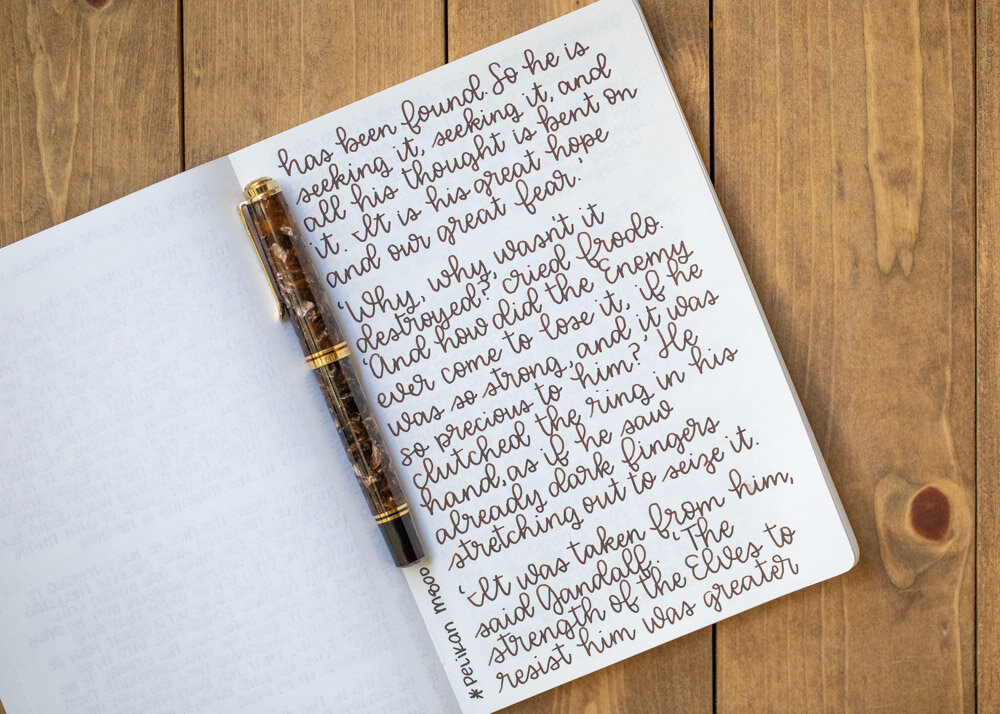 has been found. So he is
seeking it, seeking it, and
all his thought is bent on
it. It is his great hope
and our great fear.'
'Why, why wasn't it
destroyed?' cried Frodo.
'And how did the Enemy
ever come to lose it, if he
was so strong, and it was
so precious to him?' He
clutched the ring in his
hand, as if he saw
already dark fingers
stretching out to seize it.
'It was taken from him,'
said Gandalf. 'The
strength of the Elves to
resist him was greater
*Pelikan M600